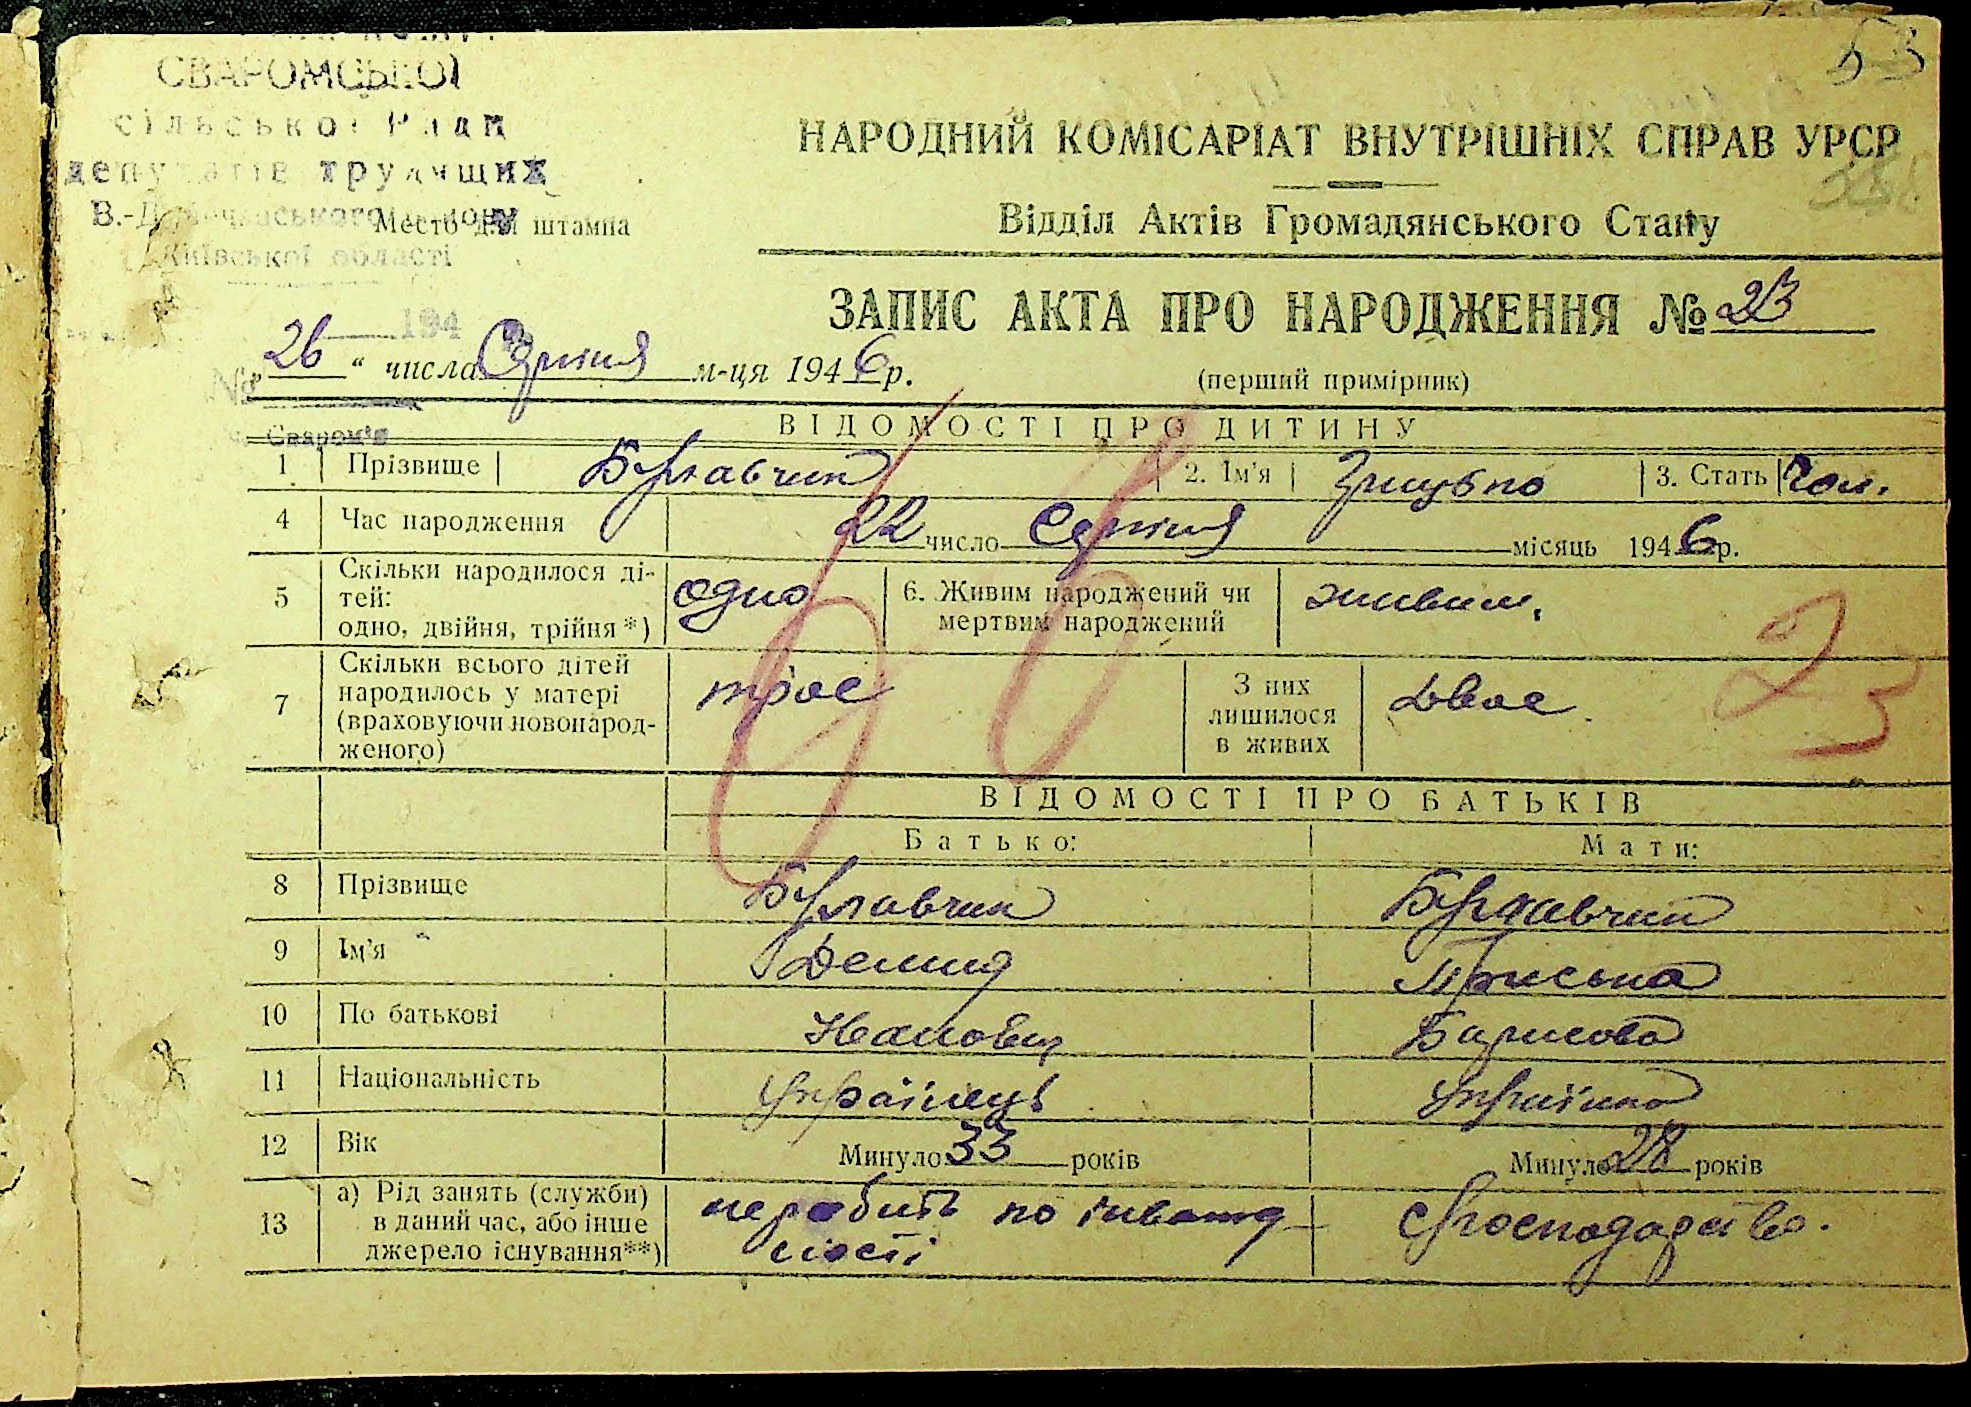 СВАРОМСЬКОЇ
сільської Ради
депутатів трудящих
Місто для штампа
Київської області
194
№
с. Сваром'я
53
НАРОДНИЙ КОМІСАРІАТ ВНУТРІШНІХ СПРАВ УРСР
Відділ Актів Громадянського Стану
ЗАПИС АКТА ПРО НАРОДЖЕННЯ № 23
„ 26 “ числа Серпня м-ця 1946 р.
(перший примірник)
ВІДОМОСТІ ПРО ДИТИНУ
1 Прізвище Булавчик 2. Ім'я Грицько 3. Стать Чол.
4 Час народження 22 число Серпня місяць 1946 р.
5 Скільки народилося ді-
тей:
одно, двійня, трійня*) одно 6. Живим народжений чи
мертвим народжений живим.
7 Скільки всього дітей
народилось у матері
(враховуючи новонарод-
женого) троє З них
лишилося
в живих двоє.
23
ВІДОМОСТІ ПРО БАТЬКІВ
Батько: Мати:
8 Прізвище Булавчик Булавчик
9 Ім'я Демид Приська
10 По батькові Іванович Борисовна
11 Національність Українець Українка
12 Вік Минуло 33 років Минуло 28 років
13 а) Рід занять (служби)
в даний час, або інше
джерело існування**) не робить по інвалід
ності с/господарство.